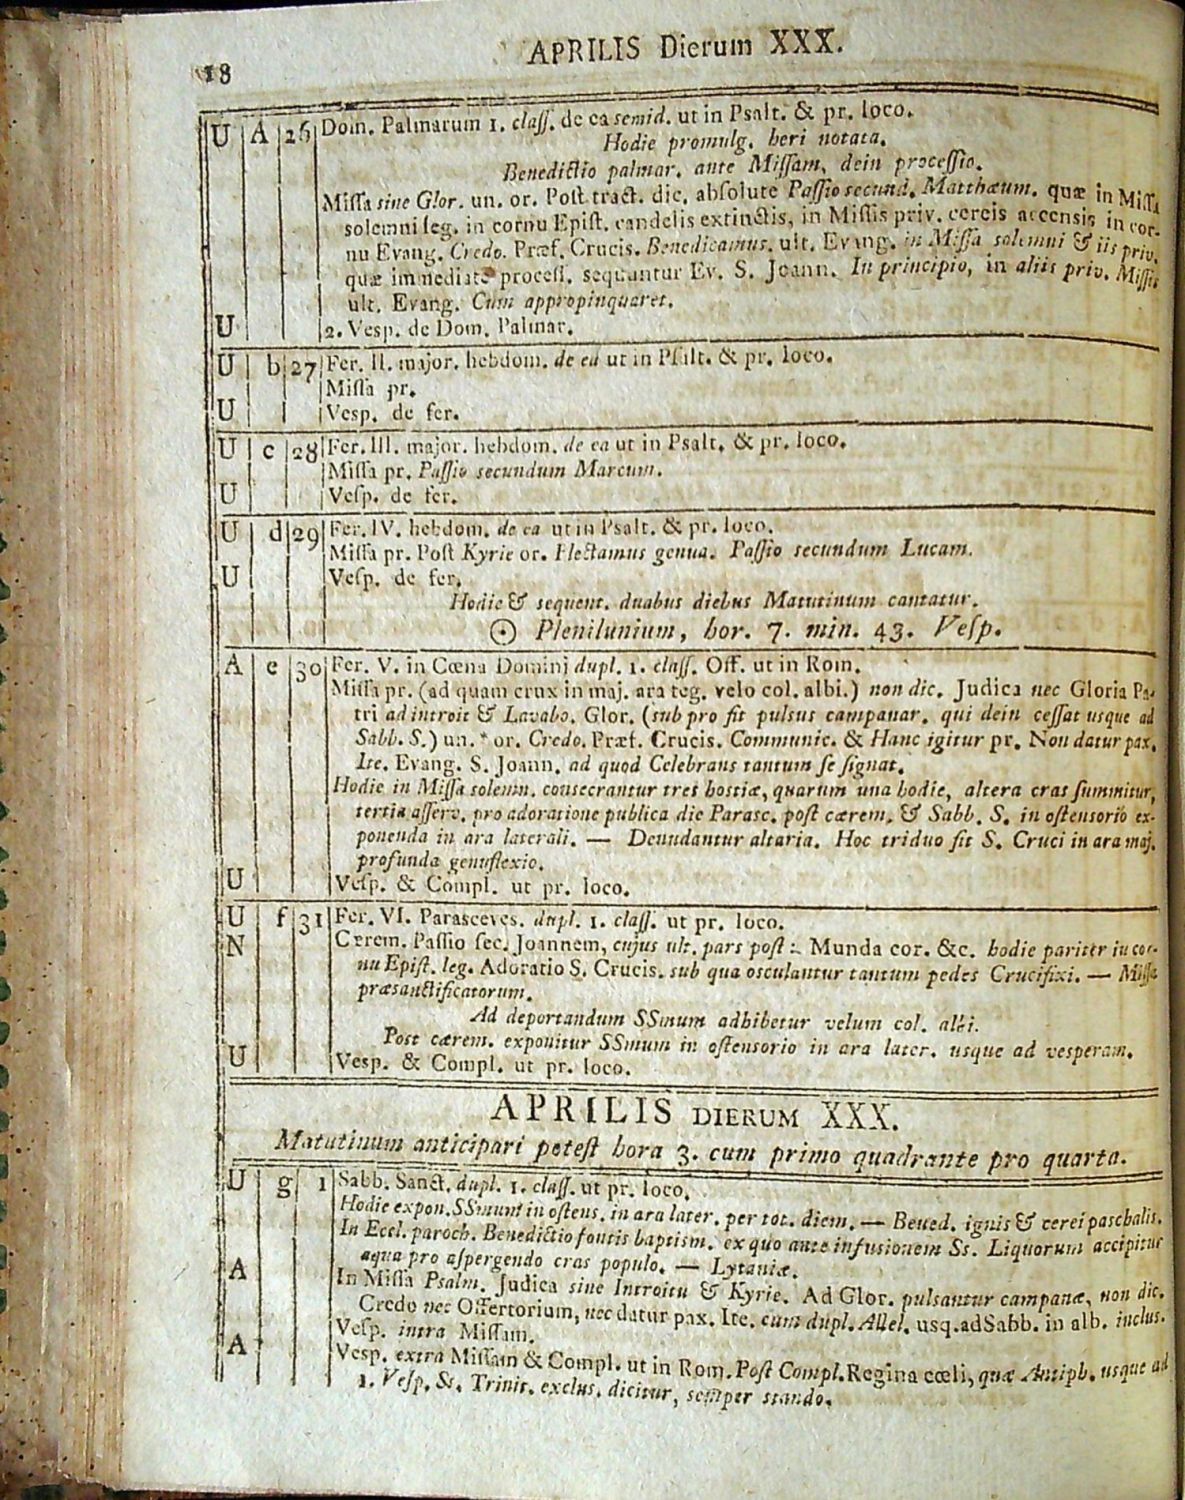 18
APRILIS Dierum XXX.
U A 26 Dom. Palmarum 1. claſſ. de ea semid. ut in Psalt. & pr. loco.
Hodie promulg. heri notata.
Benedictio palmar. ante Miſſam, dein proceſſio.
Miſſa sine Glor. un. or. Poſt tract. dic. abſolute Paſſio secund. Matthæum. quæ in Miſſa
solemni leg. in cornu Epiſt. candelis extinctis, in Miſſis priv. cereis accensis in cor-
nu Evang. Credo. Præf. Crucis. Benedicamus. ult. Evang. in Miſſa solemni & iis priv.
quæ immediate proceſſ. sequuntur Ev. S. Joann. In principio, in aliis priv. Miſſis
ult. Evang. Cum appropinquaret.
U 2. Vesp. de Dom. Palmar.
U b 27 Fer. II. major. hebdom. de ea ut in Pſalt. & pr. loco.
Miſſa pr.
U Vesp. de fer.
U c 28 Fer. III. major. hebdom. de ea ut in Psalt. & pr. loco.
Miſſa pr. Paſſio secundum Marcum.
U Veſp. de fer.
U d 29 Fer. IV. hebdom. de ea ut in Psalt. & pr. loco.
Miſſa pr. Poſt Kyrie or. Flectamus genua. Paſſio secundum Lucam.
U Veſp. de fer.
Hodie & sequent. duabus diebus Matutinum cantatur.
☉ Plenilunium, hor. 7. min. 43. Veſp.
A e 30 Fer. V. in Cœna Domini dupl. 1. claſſ. Off. ut in Rom.
Miſſa pr. (ad quam crux in maj. ara teg. velo col. albi.) non dic. Judica nec Gloria Pa-
tri ad introit & Lavabo. Glor. (sub pro fit pulsus campanar. qui dein ceſſat usque ad
Sabb. S.) un. * or. Credo. Præf. Crucis. Communic. & Hanc igitur pr. Non datur pax.
Ite. Evang. S. Joann. ad quod Celebrans tantum ſe ſignat.
Hodie in Miſſa solemn. consecrantur tres hostiæ, quarum una hodie, altera cras ſummitur,
tertia aſſerv. pro adoratione publica die Parasc. poſt cærem. & Sabb. S. in oſtensorio ex-
ponenda in ara laterali. — Denudantur altaria. Hoc triduo fit S. Cruci in ara maj.
profunda genuflexio.
U Veſp. & Compl. ut pr. loco.
U f 31 Fer. VI. Parasceves. dupl. 1. claſſ. ut pr. loco.
N Cærem. Paſſio ſec. Joannem, cujus ult. pars poſt :. Munda cor. &c. hodie pariter in cor-
nu Epiſt. leg. Adoratio S. Crucis. sub qua osculantur tantum pedes Crucifixi. — Miſſa
præsanctificatorum.
Ad deportandum SSmum adhibetur velum col. albi.
Post cærem. exponitur SSmum in oſtensorio in ara later. usque ad vesperam.
U Vesp. & Compl. ut pr. loco.
APRILIS DIERUM XXX.
Matutinum anticipari poteſt hora 3. cum primo quadrante pro quarta.
U g 1 Sabb. Sanct. dupl. 1. claſſ. ut pr. loco.
Hodie expon. SSmum in oſtens. in ara later. per tot. diem. — Bened. ignis & cerei paschalis.
In Eccl. paroch. Benedictio fontis baptism. ex quo ante infusionem Ss. Liquorum accipitur
aqua pro aſpergendo cras populo. — Lytaniæ.
A In Miſſa Psalm. Judica sine Introitu & Kyrie. Ad Glor. pulsantur campanæ, non dic.
Credo nec Offertorium, nec datur pax. Ite. cum dupl. Allel. usq. ad Sabb. in alb. inclus.
Veſp. intra Miſſam.
A Vesp. extra Miſſam & Compl. ut in Rom. Poſt Compl. Regina cœli, quæ Antiph. usque ad
1. Veſp. Ss. Trinit. exclus. dicitur, semper stando.